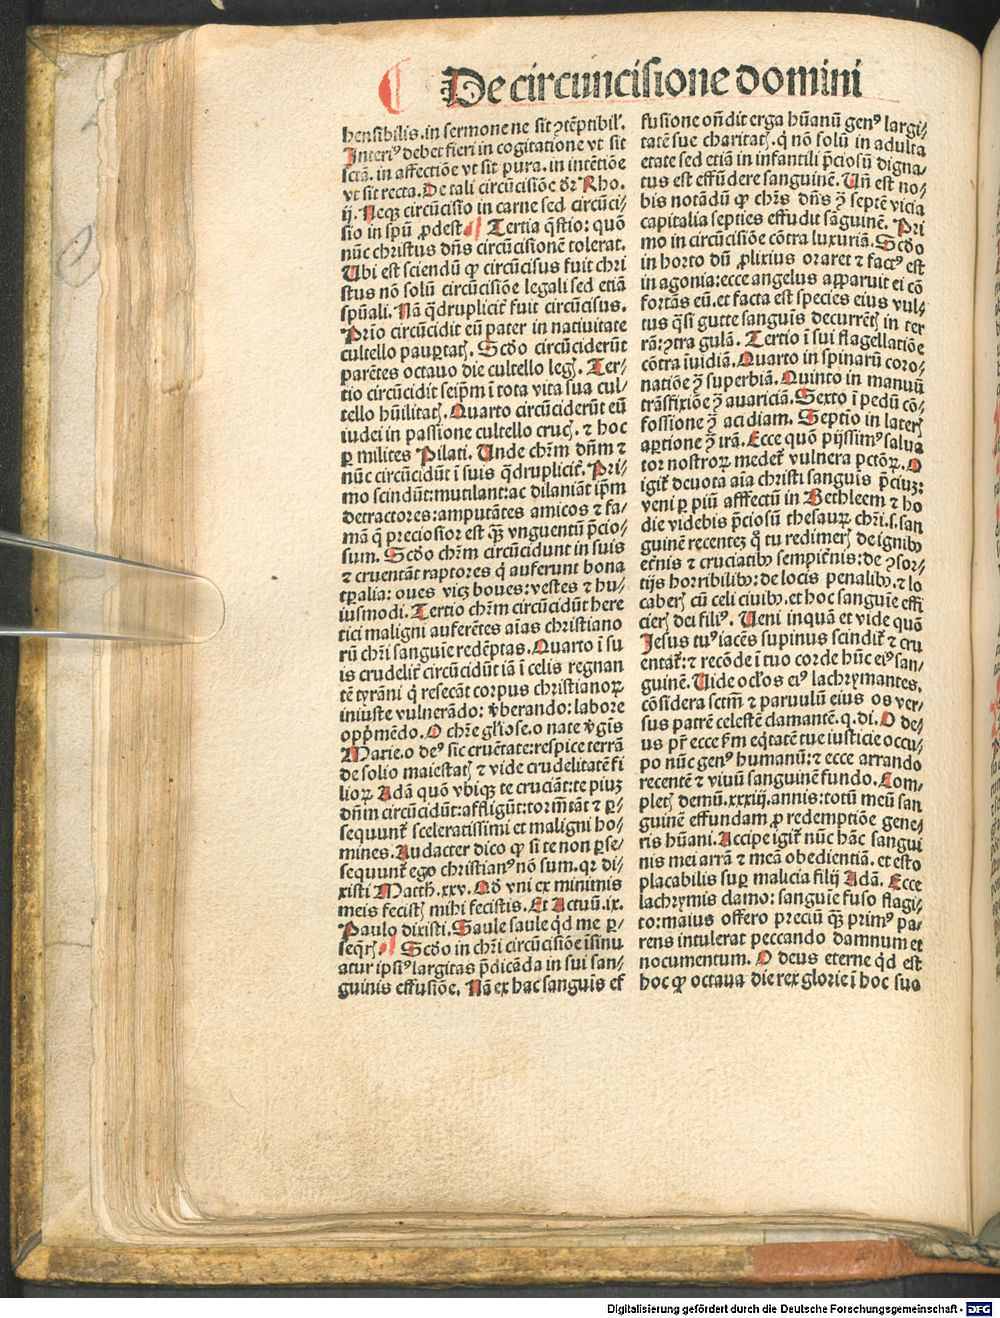 De circuncisione domini
hensibilis. in sermone ne sit ꝯtēptibil᷒.
Interi᷒ debet fieri in cogitatione vt sit
sctā. in affectiōe vt sit pura. in intētiōe
vt sit recta. De tali circūcisiōe dr̄ Rho.
ij. Neqꝫ circūcisio in carne sed circūci⸗
sio in spū ꝓdest. Tertia q̄stio: quō
nūc christus dn̄s circūcisionē tolerat.
Ubi est sciendū ꝙ circūcisus fuit chri
stus nō solū circūcisiōe legali sed etiā
spūali. Nā q̄druplicit̄ fuit circūcisus.
Prīo circūcidit eū pater in natiuitate
cultello pauꝑtatꝭ. Scd̄o circūciderūt
parētes octauo die cultello legꝭ. Ter⸗
tio circūcidit seip̄m ī tota vita sua cul⸗
tello hūilitatꝭ. Quarto circūciderūt eū
iudei in passione cultello crucꝭ. ⁊ hoc
ꝑ milites Pilati. Unde chr̄m dn̄m ⁊
nūc circūcidūt ī suis q̄druplicit̄. Pri⸗
mo scindūt: mutilant: ac dilaniāt ip̄m
detractores: amputātes amicos ⁊ fa⸗
mā q̄ preciosior est qꝫ̄ vnguentū p̄cio⸗
sum. Scd̄o chr̄m circūcidunt in suis
⁊ cruentāt raptores q̇ auferunt bona
tꝑalia: oues vicꝫ boues: vestes ⁊ hu⸗
iusmodi. Tertio chr̄m circūcidūt here
tici maligni auferētes aīas christiano
rū chr̄i sanguīe redēptas. Quarto ī su
is crudelit̄ circūcidūt iā ī celis regnan
tē tyrāni q̇ resecāt corpus christianoꝝ
iniuste vulnerādo: v̄berando: labore
opp̄mēdo. O chr̄e gl̄iose. o nate v̄gīs
Marie. o de᷒ sic cruētate: respice terrā
de solio maiestatꝭ ⁊ vide crudelitatē fi
lioꝝ Adā quō vbiqꝫ te cruciāt: te piuꝫ
dn̄m circūcidūt: affligūt: torm̄tāt ⁊ ꝑ⸗
sequunt̄ sceleratissimi et maligni ho⸗
mines. Audacter dico ꝙ si te non ꝑse⸗
sequunt̄ ego christian᷒ nō sum. qꝛ di⸗
xisti Matth. xxv. Qd̄ vni ex minimis
meis fecistꝭ mihi fecistis. Et Actuū. ix.
Paulo dixisti. Saule saule qd̄ me ꝑ⸗
seq̄rꝭ. Scd̄o in chr̄i circūcisiōe īsinu
atur ipsi᷒ largitas p̄dicāda in sui san⸗
guinis effusiōe. Nā ex hac sanguis ef
fusione on̄dit erga hūanū gen᷒ largi⸗
tatē sue charitatꝭ. q̇ nō solū in adulta
etate sed etiā in infantili p̄ciosū digna⸗
tus est effūdere sanguinē. Un̄ est no⸗
bis notādū ꝙ chr̄s dn̄s ꝯ̄ septē vicia
capitalia septies effudit sāguinē. Pri
mo in circūcisiōe cōtra luxuriā. Scd̄o
in horto dū ꝓlixius oraret ⁊ fact᷒ est
in agonia: ecce angelus apparuit ei cō
fortās eū. et facta est species eius vul⸗
tus q̄si gutte sanguīs decurrētꝭ in ter
rā: ꝯtra gulā. Tertio ī sui flagellatiōe
cōtra īuidiā. Quarto in spinarū coro⸗
natiōe ꝯ̄ superbiā. Quinto in manuū
trāsfixiōe ꝯ̄ auariciā. Sexto ī pedū cō⸗
fossione ꝯ̄ acidiam. Septīo in laterꝭ
aꝑtione ꝯ̄ irā. Ecce quō pijssim᷒ salua
tor nostroꝝ medet̄ vulnera pctōꝝ. O
igit̄ deuota aīa christi sanguis p̄ciuꝫ:
veni ꝑ piū affectū in Bethleem ⁊ ho
die videbis p̄ciosū thesauꝝ chr̄i. s. san
guinē recenteꝫ q̊ tu redimerꝭ de ignibꝰ
et̄nis ⁊ cruciatibꝰ sempit̄nis: de ꝯsor⸗
tijs horribilibꝰ: de locis penalibꝰ. ⁊ lo
caberꝭ cū celi ciuibꝰ. et hoc sanguīe effi
cierꝭ dei fili᷒. Ueni inquā et vide quō
Jesus tu᷒ iacēs supinus scindit̄ ⁊ cru
entat̄: ⁊ recōde ī tuo corde hūc ei᷒ san⸗
guinē. Uide oc̄los ei᷒ lachrymantes.
cōsidera sctm̄ ⁊ paruulū eius os ver⸗
sus patrē celestē clamantē. q. di. O de⸗
us pr̄ ecce fm̄ eq̄tatē tue iusticie occu⸗
po nūc gen᷒ humanū: ⁊ ecce arrando
recentē ⁊ viuū sanguinē fundo. Com⸗
pletꝭ demū. xxxiij. annis: totū meū san
guinē effundam ꝓ redemptiōe gene⸗
ris hūani. Accipe igit̄ nūc hāc sangui
nis mei arrā ⁊ meā obedientiā. et esto
placabilis suꝑ malicia filij Adā. Ecce
lachrymis clamo: sanguīe fuso flagi⸗
to: maius offero preciū qꝫ̄ prim᷒ pa⸗
rens intulerat peccando damnum et
nocumentum. O deus eterne qd̄ est
hoc ꝙ octaua die rex glorie ī hoc suo
Digitalisierung gefördert durch die Deutsche Forschungsgemeinschaft - DFG